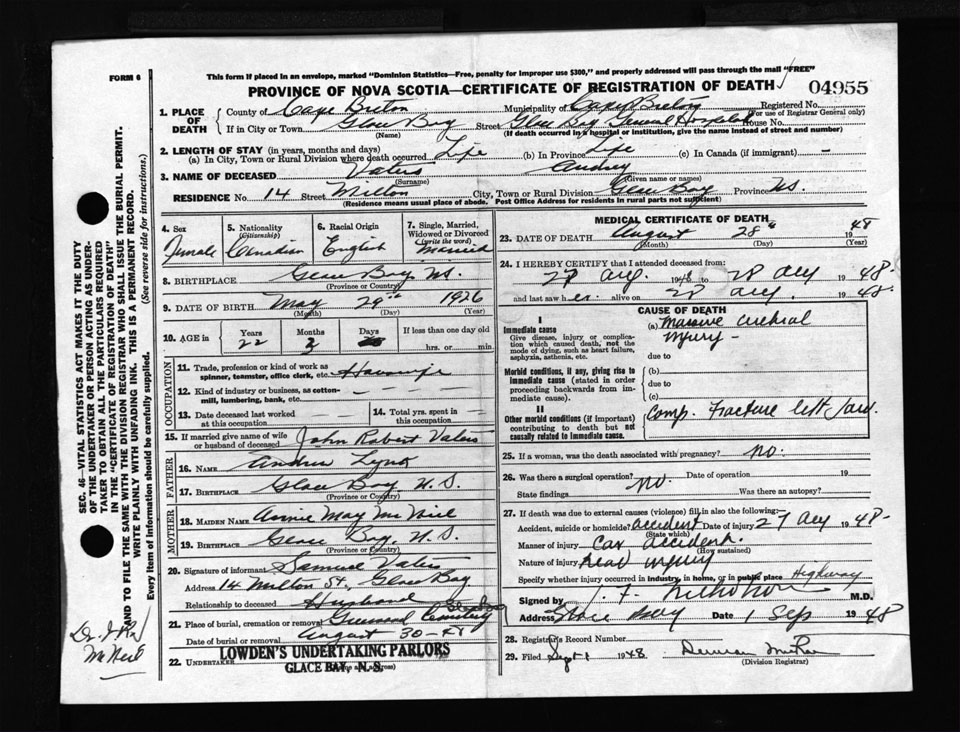 This form if placed in an envelope, marked "Dominion Statistics—Free, penalty for improper use $300," and properly addressed will pass through the mail "FREE"
FORM 6
PROVINCE OF NOVA SCOTIA—CERTIFICATE OF REGISTRATION OF DEATH
04955
1. PLACE OF DEATH
County of Cape Breton Municipality of Cape Breton Registered No.
(For use of Registrar General only)
If in City or Town Glace Bay Street Glace Bay General Hospital House No.
(Name) (If death occurred in hospital or institution, give the name instead of street and number)
2. LENGTH OF STAY (in years, months and days)
(a) In City, Town or Rural Division where death occurred Life (b) In Province Life (c) In Canada (if immigrant) —
3. NAME OF DECEASED Vaters Audrey
(Surname) (Given name or names)
RESIDENCE No. 14 Street Milton City, Town or Rural Division Glace Bay Province N.S.
(Residence means usual place of abode. Post Office Address for residents in rural parts not sufficient)
4. Sex
Female
5. Nationality
(Citizenship)
Canadian
6. Racial Origin
English
7. Single, Married, Widowed or Divorced
(write the word)
Married
8. BIRTHPLACE Glace Bay, N.S.
(Province or Country)
9. DATE OF BIRTH May 29th 1926
(Month) (Day) (Year)
10. AGE in
Years Months Days If less than one day old
22 3
hrs. or min.
OCCUPATION
11. Trade, profession or kind of work as spinner, teamster, office clerk, etc. Housewife
12. Kind of industry or business, as cotton-mill, lumbering, bank, etc.
13. Date deceased last worked at this occupation
14. Total yrs. spent in this occupation
15. If married give name of wife or husband of deceased John Robert Vaters
FATHER
16. NAME Andrew
17. BIRTHPLACE Glace Bay N.S.
(Province or Country)
MOTHER
18. MAIDEN NAME Annie May McNeil
19. BIRTHPLACE Glace Bay, N.S.
(Province or Country)
20. Signature of informant Samuel Vaters
Address 14 Milton St, Glace Bay
Relationship to deceased Husband
21. Place of burial, cremation or removal Greenwood Cemetery Glace Bay
Date of burial or removal August 30-48
22. UNDERTAKER LOWDEN'S UNDERTAKING PARLORS
(Name and address)
GLACE BAY, N.S.
MEDICAL CERTIFICATE OF DEATH
23. DATE OF DEATH August 28th 1948
(Month) (Day) (Year)
24. I HEREBY CERTIFY that I attended deceased from:
27 Aug 1948 to 28 Aug 1948.
and last saw her alive on 28 Aug, 1948.
CAUSE OF DEATH
I
Immediate cause
Give disease, injury or complication which caused death, not the mode of dying, such as heart failure, asphyxia, asthenia, etc.
(a) Massive cerebral
injury —
due to
Morbid conditions, if any, giving rise to immediate cause (stated in order proceeding backwards from immediate cause).
(b)
due to
(c)
II
Other morbid conditions (if important) contributing to death but not causally related to immediate cause.
Comp. Fracture left jaw.
25. If a woman, was the death associated with pregnancy? no.
26. Was there a surgical operation? no. Date of operation 19
State findings Was there an autopsy?
27. If death was due to external causes (violence) fill in also the following:
Accident, suicide or homicide? accident Date of injury 27 Aug 1948.
(State which)
Manner of injury Car accident.
(How sustained)
Nature of injury head injury
Specify whether injury occurred in industry, in home, or in public place Highway
Signed by J. F. Nicholson M.D.
Address Glace Bay Date 1 Sep 1948
28. Registrar's Record Number
29. Filed Sept 1 1948
(Division Registrar)
SEC. 46—VITAL STATISTICS ACT MAKES IT THE DUTY
OF THE UNDERTAKER OR PERSON ACTING AS UNDER-
TAKER TO OBTAIN ALL THE PARTICULARS REQUIRED
IN THE "CERTIFICATE OF REGISTRATION OF DEATH"
AND TO FILE THE SAME WITH THE DIVISION REGISTRAR WHO SHALL ISSUE THE BURIAL PERMIT.
WRITE PLAINLY WITH UNFADING INK. THIS IS A PERMANENT RECORD.
Every item of information should be carefully supplied. (See reverse side for instructions.)
McNeil